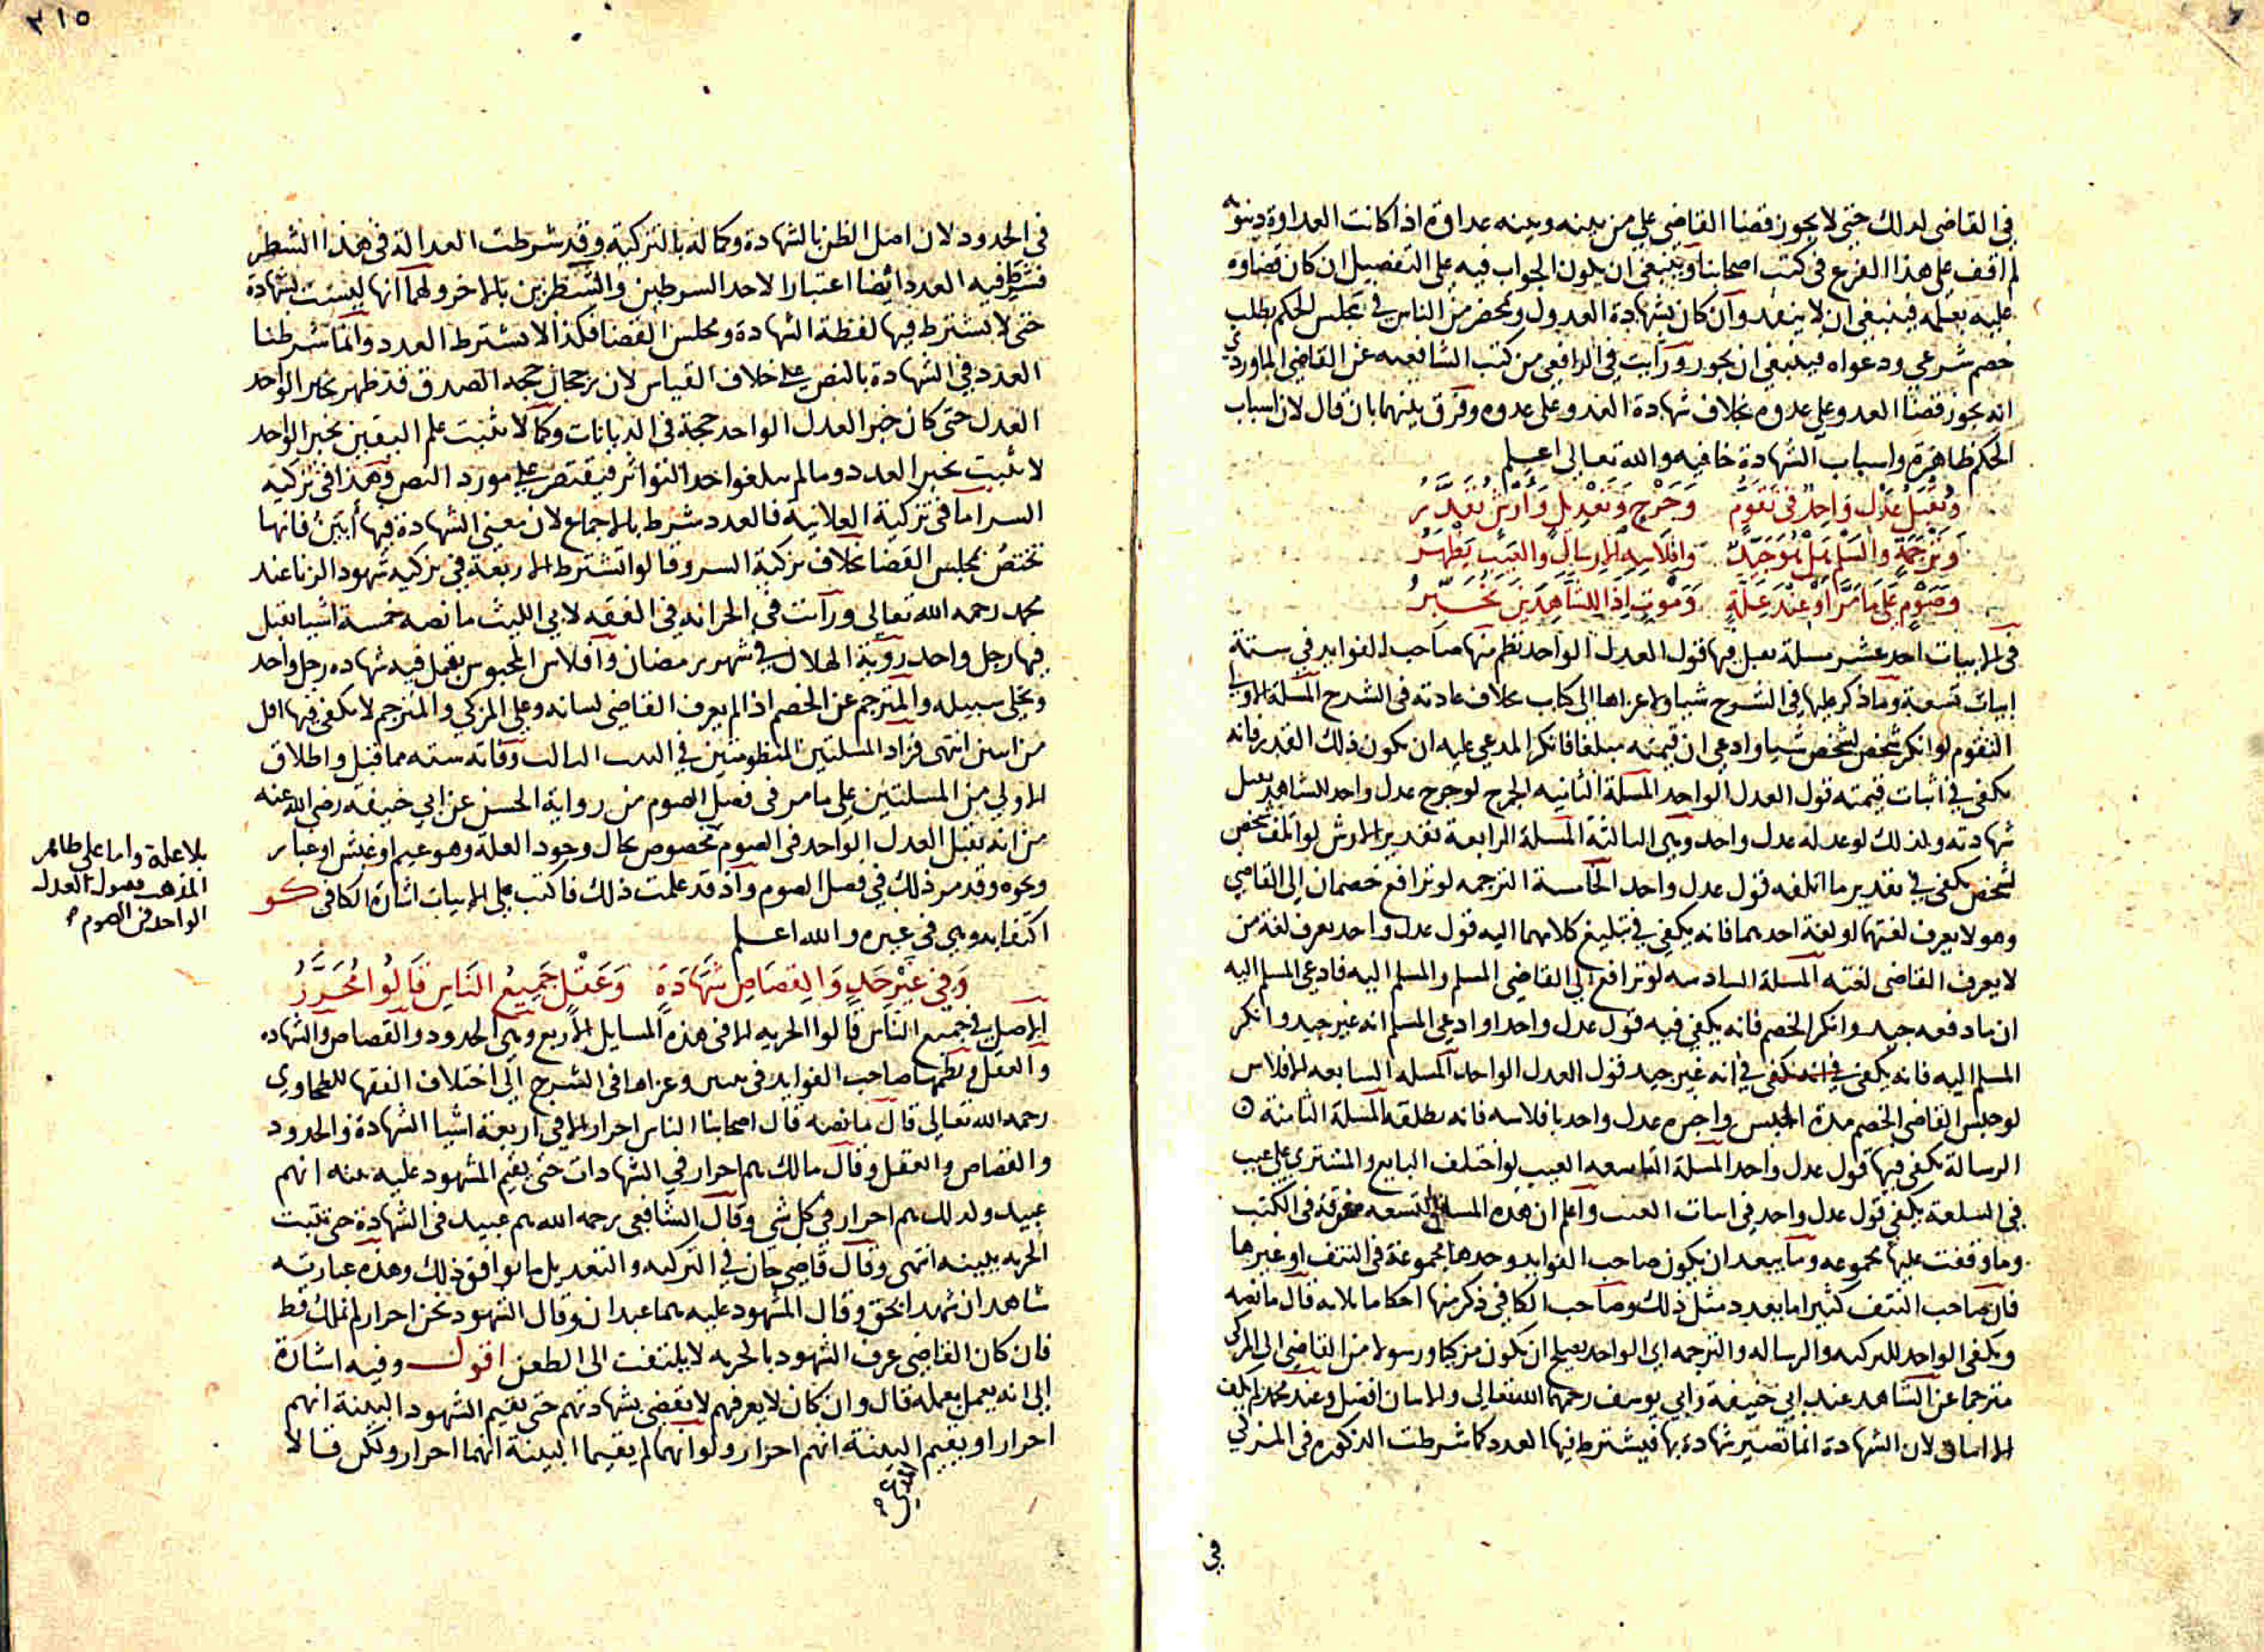 في القاضي لذلك حتى لا يجوز قضا القاضي علي من بينه وبينه عداوة اذا كانت العداوة دينويه
لم اقف على هذا الفرع في كتب اصحابنا وينبغي ان يكون الجواب فيه على التفصيل ان كان قضاوه
عليه بعلمه فينبغي ان لا ينفد وان كان بشهادة العدول وبمحضر من الناس في مجلس الحكم بطلب
خصم شرعي ودعواه فينبغي ان يجوز ورايت في الرافعي من كتب الشافعيه عن القاضي الماوردي
انه يجوز قضا العدو علي عدوه بخلاف شهادة العدو على عدوه وفرق بينهما بان قال لان اسباب
الحكم ظاهرة واسباب الشهادة خافيه والله تعالى اعلم
وَيُقبَلُ عَدْلٌ وَاحِدٌ في تَقَوُّمٍ وَجَرْحٍ وَتَعْدِيلٍ وَارْشٍ يُقَدَّرُ
وَتَرْجَمَةٍ وَالسَّلَمِ هَلْ هُوَ جَيِّدٌ وَافْلَاسِهِ الارسَالُ وَالعَيْبُ يَظْهَرُ
وَصَوْمٍ عَلَى مَا مَرَّ اَوْ عِنْدَ عِلَّةٍ وَمَوْتٍ اِذَا لِلشَّاهِدَيْنِ يُخَبِّرُ
في الابيات احد عشر مسلة يقبل فيها قول العدل الواحد نظم منها صاحب الفوايد في ستة
ابيات تسعة وما ذكر عليها في الشرح شيا ولا عزاها الى كتاب بخلاف عادته في الشرح المسلة الاولى
التقوم لو انكر شخص لشخص شيا وادعي ان قيمته مبلغا فانكر المدعي عليه ان يكون ذلك القدر فانه
يكفي في اثبات قيمته قول العدل الواحد المسلة الثانيه الجرح لو جرح عدل واحد للشاهد يقبل
شهادته ولذلك لو عدله عدل واحد وهي الثالثة المسلة الرابعة تقدير الارش لو اتلف شخص
لشخص يكفي في تقدير ما اتلفه قول عدل واحد الخامسة الترجمه لو ترافع خصمان الى القاضي
وهو لا يعرف لغتهما او لغة احدهما فانه يكفي في تبليغ كلامهما اليه قول عدل واحد يعرف لغة من
لا يعرف القاضي لغته المسلة السادسه لو ترافع الى القاضي المسلم والمسلم اليه فادعى المسلم اليه
ان ما دفعه جيد وانكر الخصم فانه يكفي فيه قول عدل واحد او ادعى المسلم انه غير جيد وانكر
المسلم اليه فانه يكفي في انه غير جيد قول العدل الواحد المسله السابعه الافلاس
لو حبس القاضي الخصم مدة الحبس واخبره عدل واحد بافلاسه فانه يطلقه المسلة الثامنة
الرسالة يكفي فيها قول عدل واحد المسلة التاسعه العيب لو اختلف البايع والمشتري على عيب
في السلعة يكفي قول عدل واحد في اثبات العيب واعلم ان هذه المسايل التسعه مفرقة في الكتب
وما وقفت عليها مجموعه وما يبعد ان يكون صاحب الفوايد وجدها مجموعة في النتف او غيرها
فان صاحب النتف كثيرا ما يعدد مثل ذلك وصاحب الكافي ذكر منها احكاما ثلاثه قال ما نصه
ويكفي الواحد للتزكيه والرساله والترجمه اي الواحد يصلح ان يكون مزكيا ورسولا من القاضي الى المزكي
مترجما عن الشاهد عند ابي حنيفة وابي يوسف رحمهما الله تعالى والاثنان افضل وعند محمد لم يكف
الا اثنان لان الشهادة انما تصير شهادة بها فيشترط فيها العدد كما شرطت الذكوره في المزكي
في
٣١٥
في الحدود لان اصل الظن بالشهادة وكماله بالتزكية وقد شرطت العدالة في هذا الشطر
فشرط فيه العدد ايضا اعتبارا لاحد الشرطين والشطرين بالاخر ولهما انها ليست شهادة
حتى لا يشترط فيها لفظة الشهادة ومجلس القضا فكذا لا يشترط العدد وانما شرطنا
العدد في الشهادة بالنص على خلاف القياس لان رجحان جهة الصدق قد ظهر بخبر الواحد
العدل حتى كان خبر العدل الواحد حجة في الديانات وكما لا يثبت علم اليقين بخبر الواحد
لا يثبت بخبر العدد وما لم يبلغوا حد التواتر فيقتصر على مورد النص وهذا في تزكية
السر اما في تزكية العلانيه فالعدد شرط بالاجماع لان معنى الشهادة فيها ابين فانها
تختص بمجلس القضا بخلاف تزكية السر وقالوا تشترط الاربعة في تزكيه شهود الزنا عند
محمد رحمه الله تعالى ورايت في الخزانه في الفقه لابي الليث ما نصه خمسة اشيا يقبل
فيها رجل واحد روية الهلال في شهر رمضان وافلاس المحبوس يقبل فيه شهاده رجل واحد
ويخلى سبيله والمترجم عن الخصم اذا لم يعرف القاضي لسانه وعلي المزكي والمترجم لا يكفي فيها اقل
من اثنين انتهى فزاد المسلتين المنظومتين في البيت الثالث وفاته سته مما قبل واطلاق
الاولى من المسلتين على ما مر في فصل الصوم من رواية الحسن عن ابي حنيفه رضي الله عنه
من انه يقبل العدل الواحد في الصوم مخصوص بحال وجود العلة وهو غيم او غبش او غبار
ونحوه وقد مر ذلك في فصل الصوم واذ قد علمت ذلك فاكتب على الابيات اشارة الكافي كو
اكتفا به وهي في غيره والله اعلم
بلا علة واما على ظاهر
المذهب فقبول العدل
الواحد في الصوم
وَفي غَيْرِ حَدٍ وَالقِصَاصِ شَهَادَةٍ وَعَقْلٍ جَمِيعُ النَاسِ قَالُوا مُحَرَّرُ
الاصل في جميع الناس قالوا الحريه الا في هذه المسايل الاربع وهي الحدود والقصاص والشهاده
والعقل ونظمها صاحب الفوايد في بيتين وعزاها في الشرح الى اختلاف الفقها للطحاوي
رحمه الله تعالى قال ما نصه قال اصحابنا الناس احرار الا في اربعة اشيا الشهادة والحدود
والقصاص والعقل وقال مالك هم احرار في الشهادات حتى يقيم المشهود عليه بينه انهم
عبيد ولذلك هم احرار في كل شي وقال الشافعي رحمه الله هم عبيد في الشهادة حتى تثبت
الحريه ببينه انتهى وقال قاضي خان في التزكيه والتعديل ما يوافق ذلك وهذه عبارته
شاهدان شهدا بحق وقال المشهود عليه هما عبدان وقال الشهود نحن احرار لم نملك قط
فان كان القاضي عرف الشهود بالحريه لا يلتفت الى الطعن اقول وفيه اشارة
الى انه يعمل بعلمه قال وان كان لا يعرفهم لا يقضي بشهادتهم حتى يقيم الشهود البينة انهم
احرار او يقيم البينة انهم احرار ولو انهما لم يقيما البينة انهما احرار ولكن قالا
المدعي